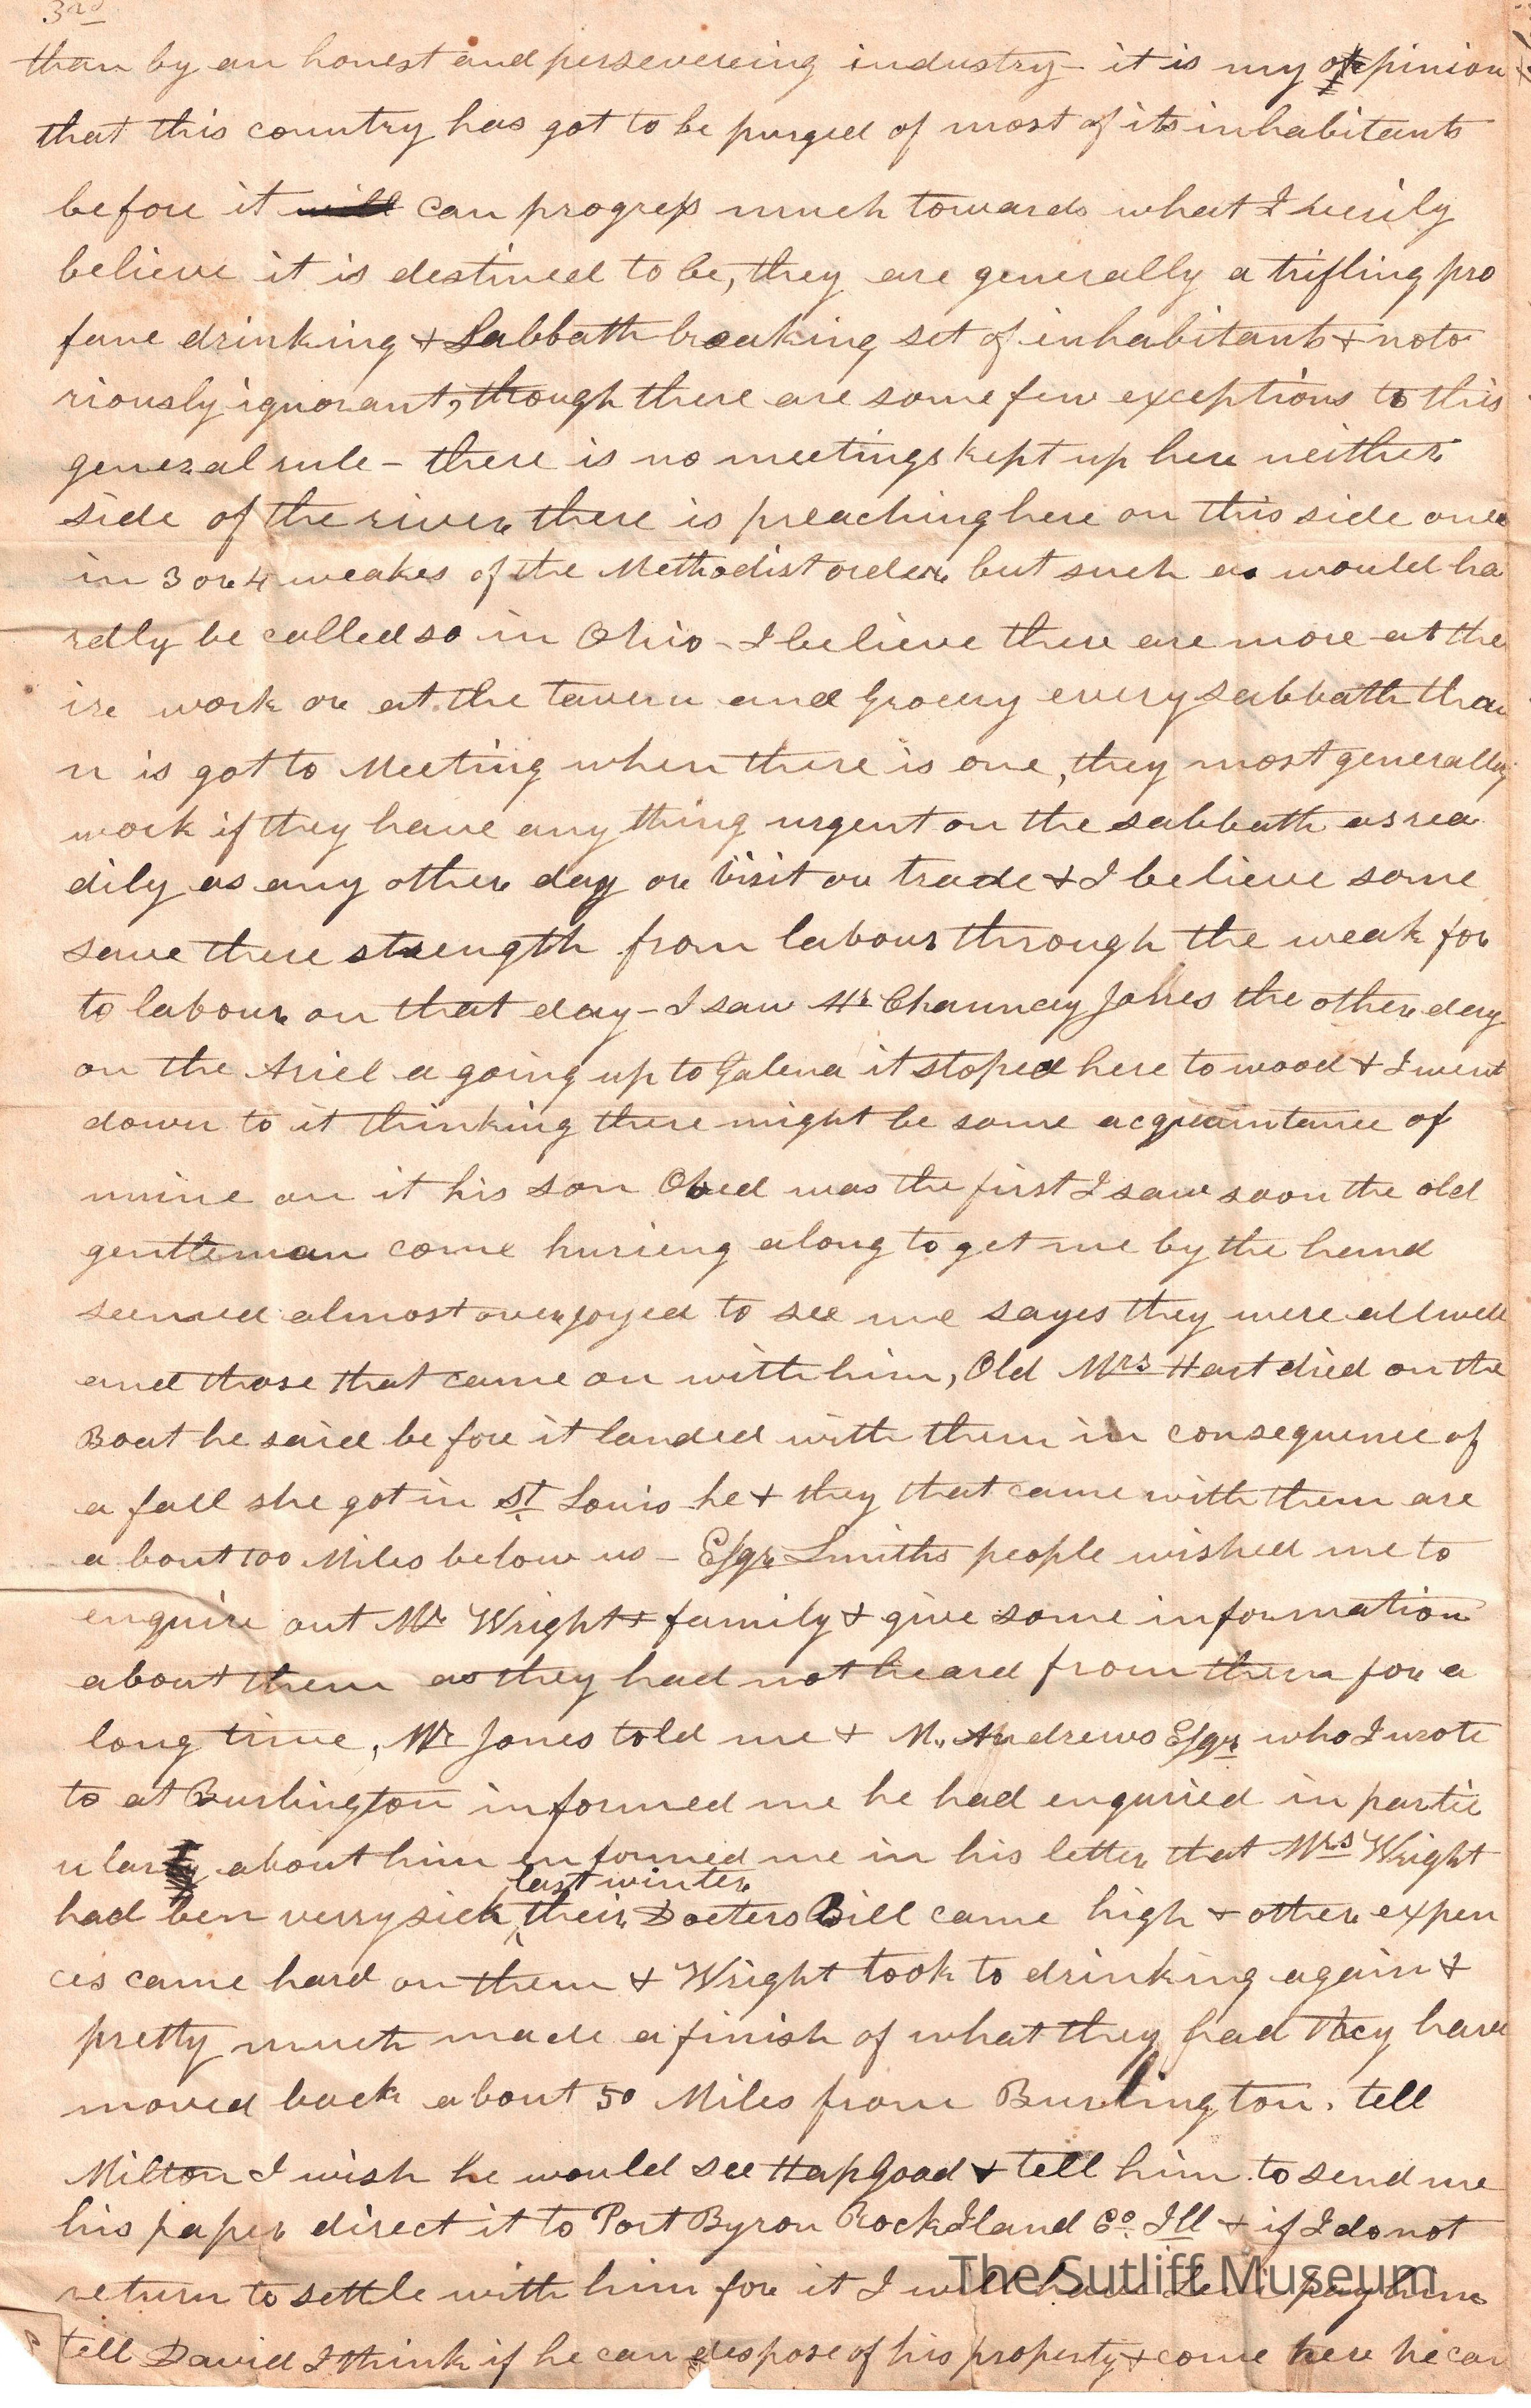 3rd
than by an honest and persevereing industry - it is my oppinion
that this country has got to be purged of most of its inhabitants
before it will can progress much towards what I verily
believe it is destined to be, they are generally a trifling pro
fane drinking & Sabbath breaking set of inhabitants & noto
riously ignorant, though there are some few exceptions to this
general rule - there is no meetings kept up here neither
side of the river, there is preaching here on this side once
in 3 or 4 weakes of the Methodist order but such as would ha
rdly be called so in Ohio - I believe there are more at the
ire work or at the tavern and Grocery every sabbath than
n is got to Meeting when there is one, they most generally
work if they have any thing urgent on the sabbath as rea
dily as any other day or visit or trade & I believe some
save there strength from labour through the weak for
to labour on that day - I saw Mr Chauncey Jones the other day
on the Ariel a going up to Galena it stoped here to wood & I went
down to it thinking there might be some acquaintance of
mine on it his son Obed was the first I saw soon the old
gentleman come hurieng along to get me by the hand
seemed almost overjoyed to see me sayes they were all well
and those that came on with him, Old Mrs Hart died on the
Boat he said before it landed with them in consequence of
a fall she got in St Louis he & they that came with them are
a bout 100 Miles below us - Esqr Smiths people wished me to
enquire out Mr Wright & family & give some information
about them as they had not heard from them for a
long time, Mr Jones told me & M. Andrews Esqr who I wrote
to at Burlington informed me he had enquried in partic
ularly about him informed me in his letter that Mrs Wright
last winter
had ben verry sick, their Docters Bill came high & other expen
ces came hard on them & Wright took to drinking again &
pretty much made a finish of what they had they have
moved back about 50 Miles from Burlington. tell
Milton I wish he would see Hapgood & tell him to send me
his paper direct it to Port Byron Rock Iland Co. Ill & if I do not
return to settle with him for it I will have pay him
The Sutliff Museum
tell David I think if he can dispose of his property & come here he can